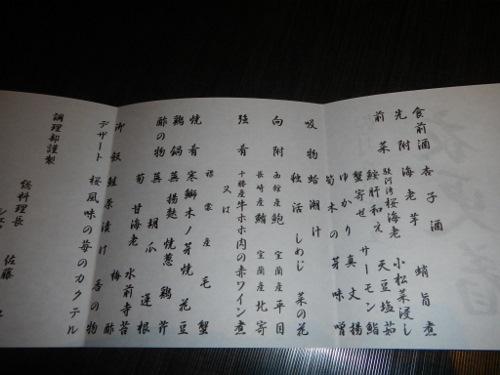 食前酒 杏子酒
先附 海老芋 蛸旨煮
前菜 駿河湾桜海老 小松菜浸し
鮟肝和え 天豆塩茹
蟹寄せ サーモン鮨
ゆかり真丈揚
筍木の芽味噌
吸物 蛤潮汁
独活 しめじ 菜の花
向附 函館産鮑 室蘭産平目
長崎産鮪 室蘭産北寄
強肴 十勝産牛ホホ肉の赤ワイン煮
又は
標雲産毛蟹
焼肴 寒鰤木ノ芽焼 花豆
鶏鍋 蒸揚麩 焼葱 鶏 芹
酢の物 蕪 胡瓜 蓮根
筍 甘海老 水前寺苔
梅酢
御飯 鮭茶漬け 香の物
デザート 桜風味の苺のカクテル
調理部謹製
総料理長
佐藤